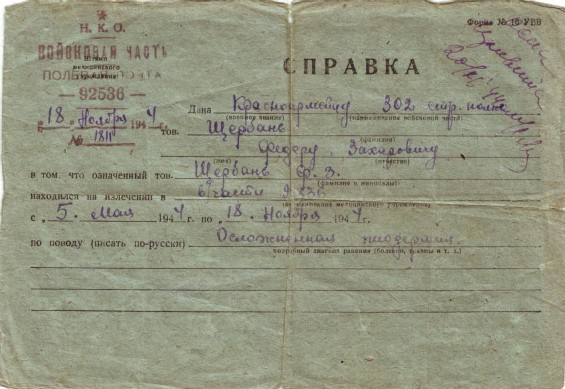 Н. К. О.
Форма № 16 УВВ
ВОЙСКОВАЯ ЧАСТЬ
Штамп
ПОЛЕВАЯ ПОЧТА
— 92536 —
СПРАВКА
„18“ Ноября 1944 г.
№ 1811
Дана Красноармейцу 302 стр. полка
(воинское звание) (наименование войсковой части)
тов. Щербань
(фамилия)
Федору Захаровичу
(имя) (отчество)
в том, что означенный тов. Щербань Ф. З.
(фамилия и инициалы)
находился на излечении в
(наименование медицинского учреждения)
с 5. Мая 1944 г. по 18. Ноября 1944 г.
по поводу (писать по-русски) Осложненная пиодермия.
подробный диагноз ранения (болезни, травмы и т. д.)